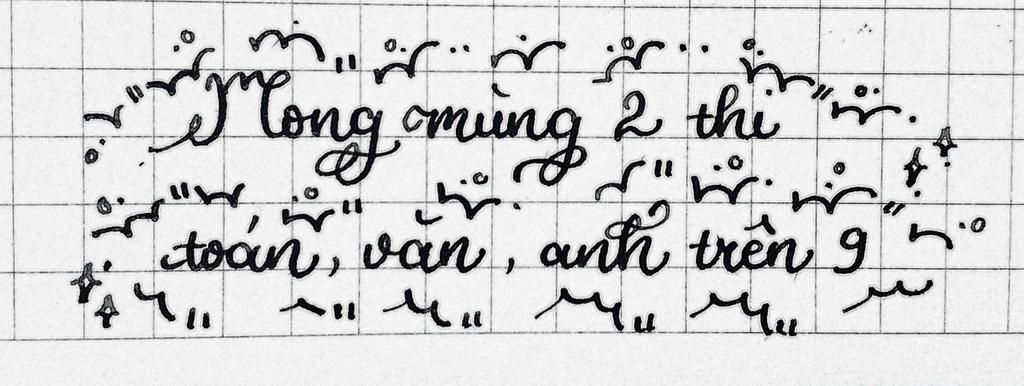 Mong mùng 2 thi
toán, văn, anh trên 9